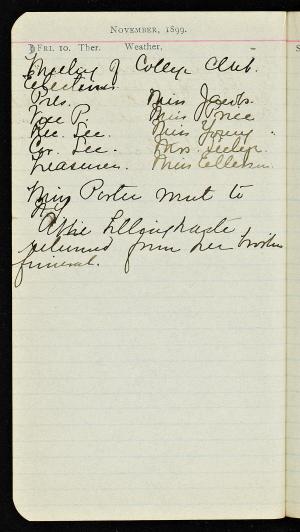 NOVEMBER, 1899.
FRI. 10. Ther. Weather,
Meeting of College Club.
Elections
Pres. Miss Jacobs.
Vice P. Miss Price
Rec. Sec. Miss Young.
Cor. Sec. Mrs.
Treasurer. Miss
Miss Porter went to
Effie
returned from her brothers
funeral.